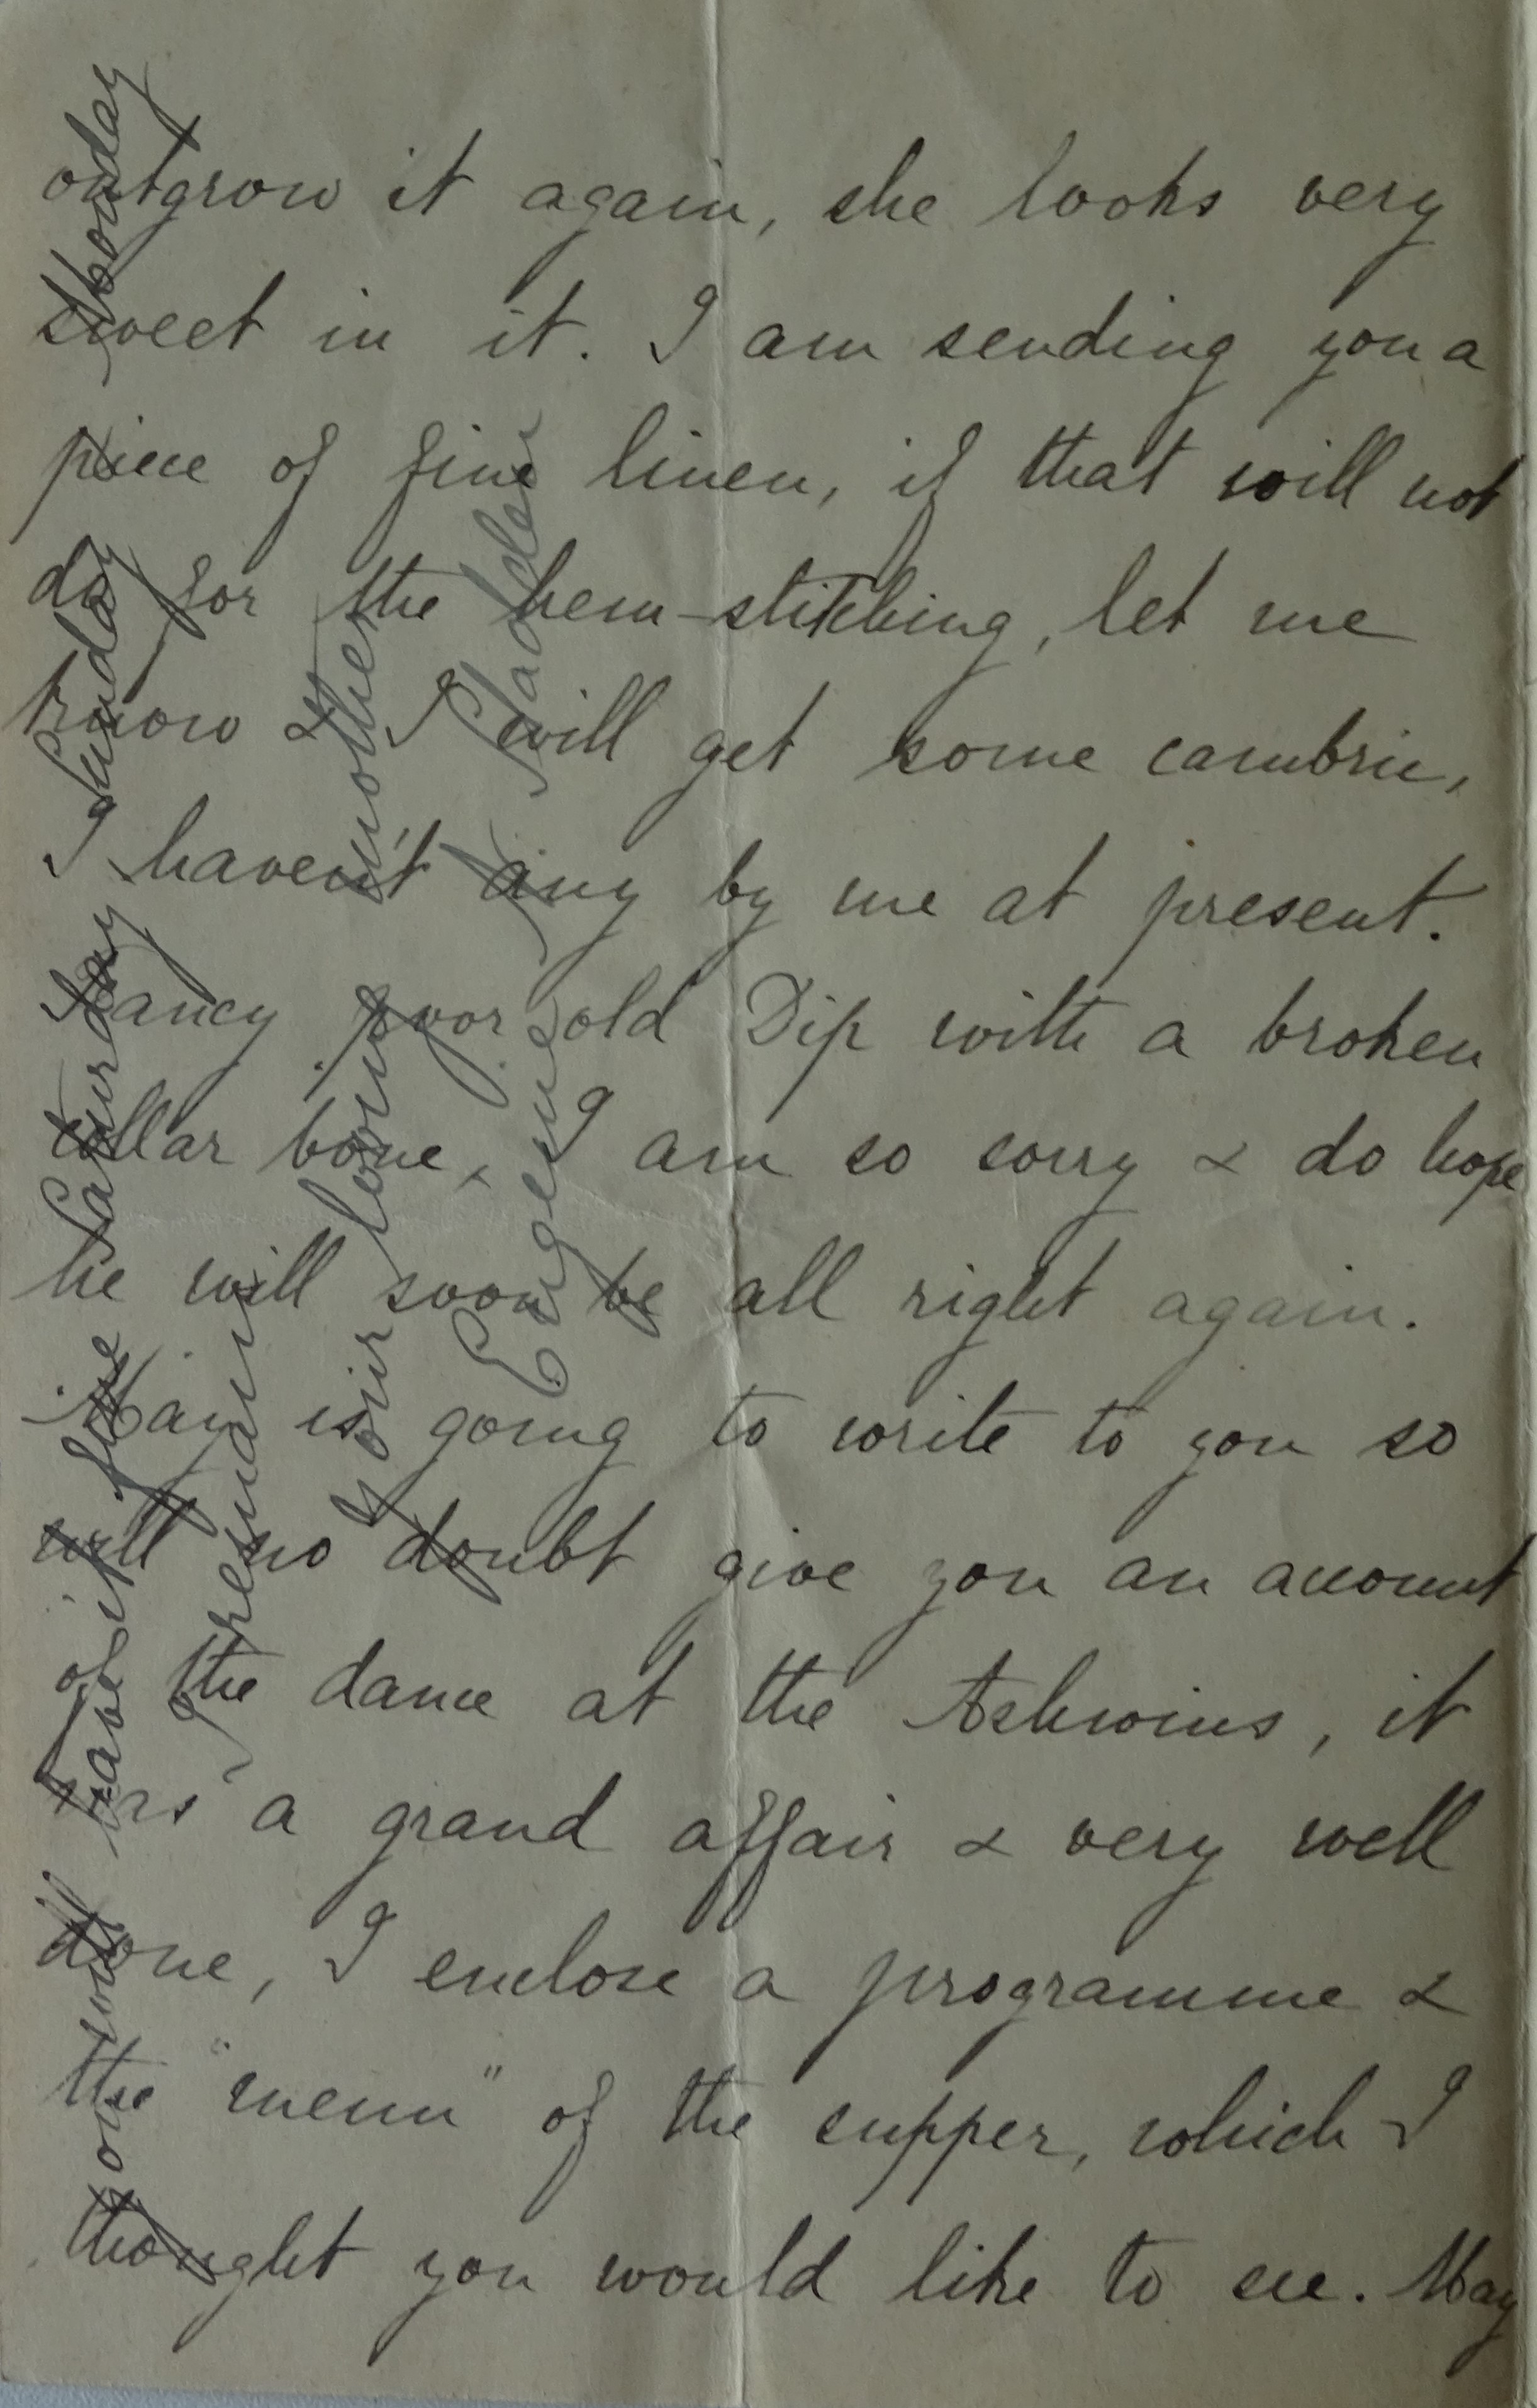 outgrow it again, she looks very
sweet in it. I am sending you a
piece of fine linen, if that will not
do for the hem-stitching, let me
know & I will get some cambric,
I haven't any by me at present.
Fancy poor old Dip with a broken
collar bone, I am so sorry & do hope
he will soon be all right again.
May is going to write to you so
will no doubt give you an account
of the dance at the Ashwins, it
was a grand affair & very well
done, I enclose a programme &
the "menu" of the supper, which I
thought you would like to see. May
you will have it fine Saturday Sunday & Monday
I remain
your loving mother
Eugenie J. Hadder